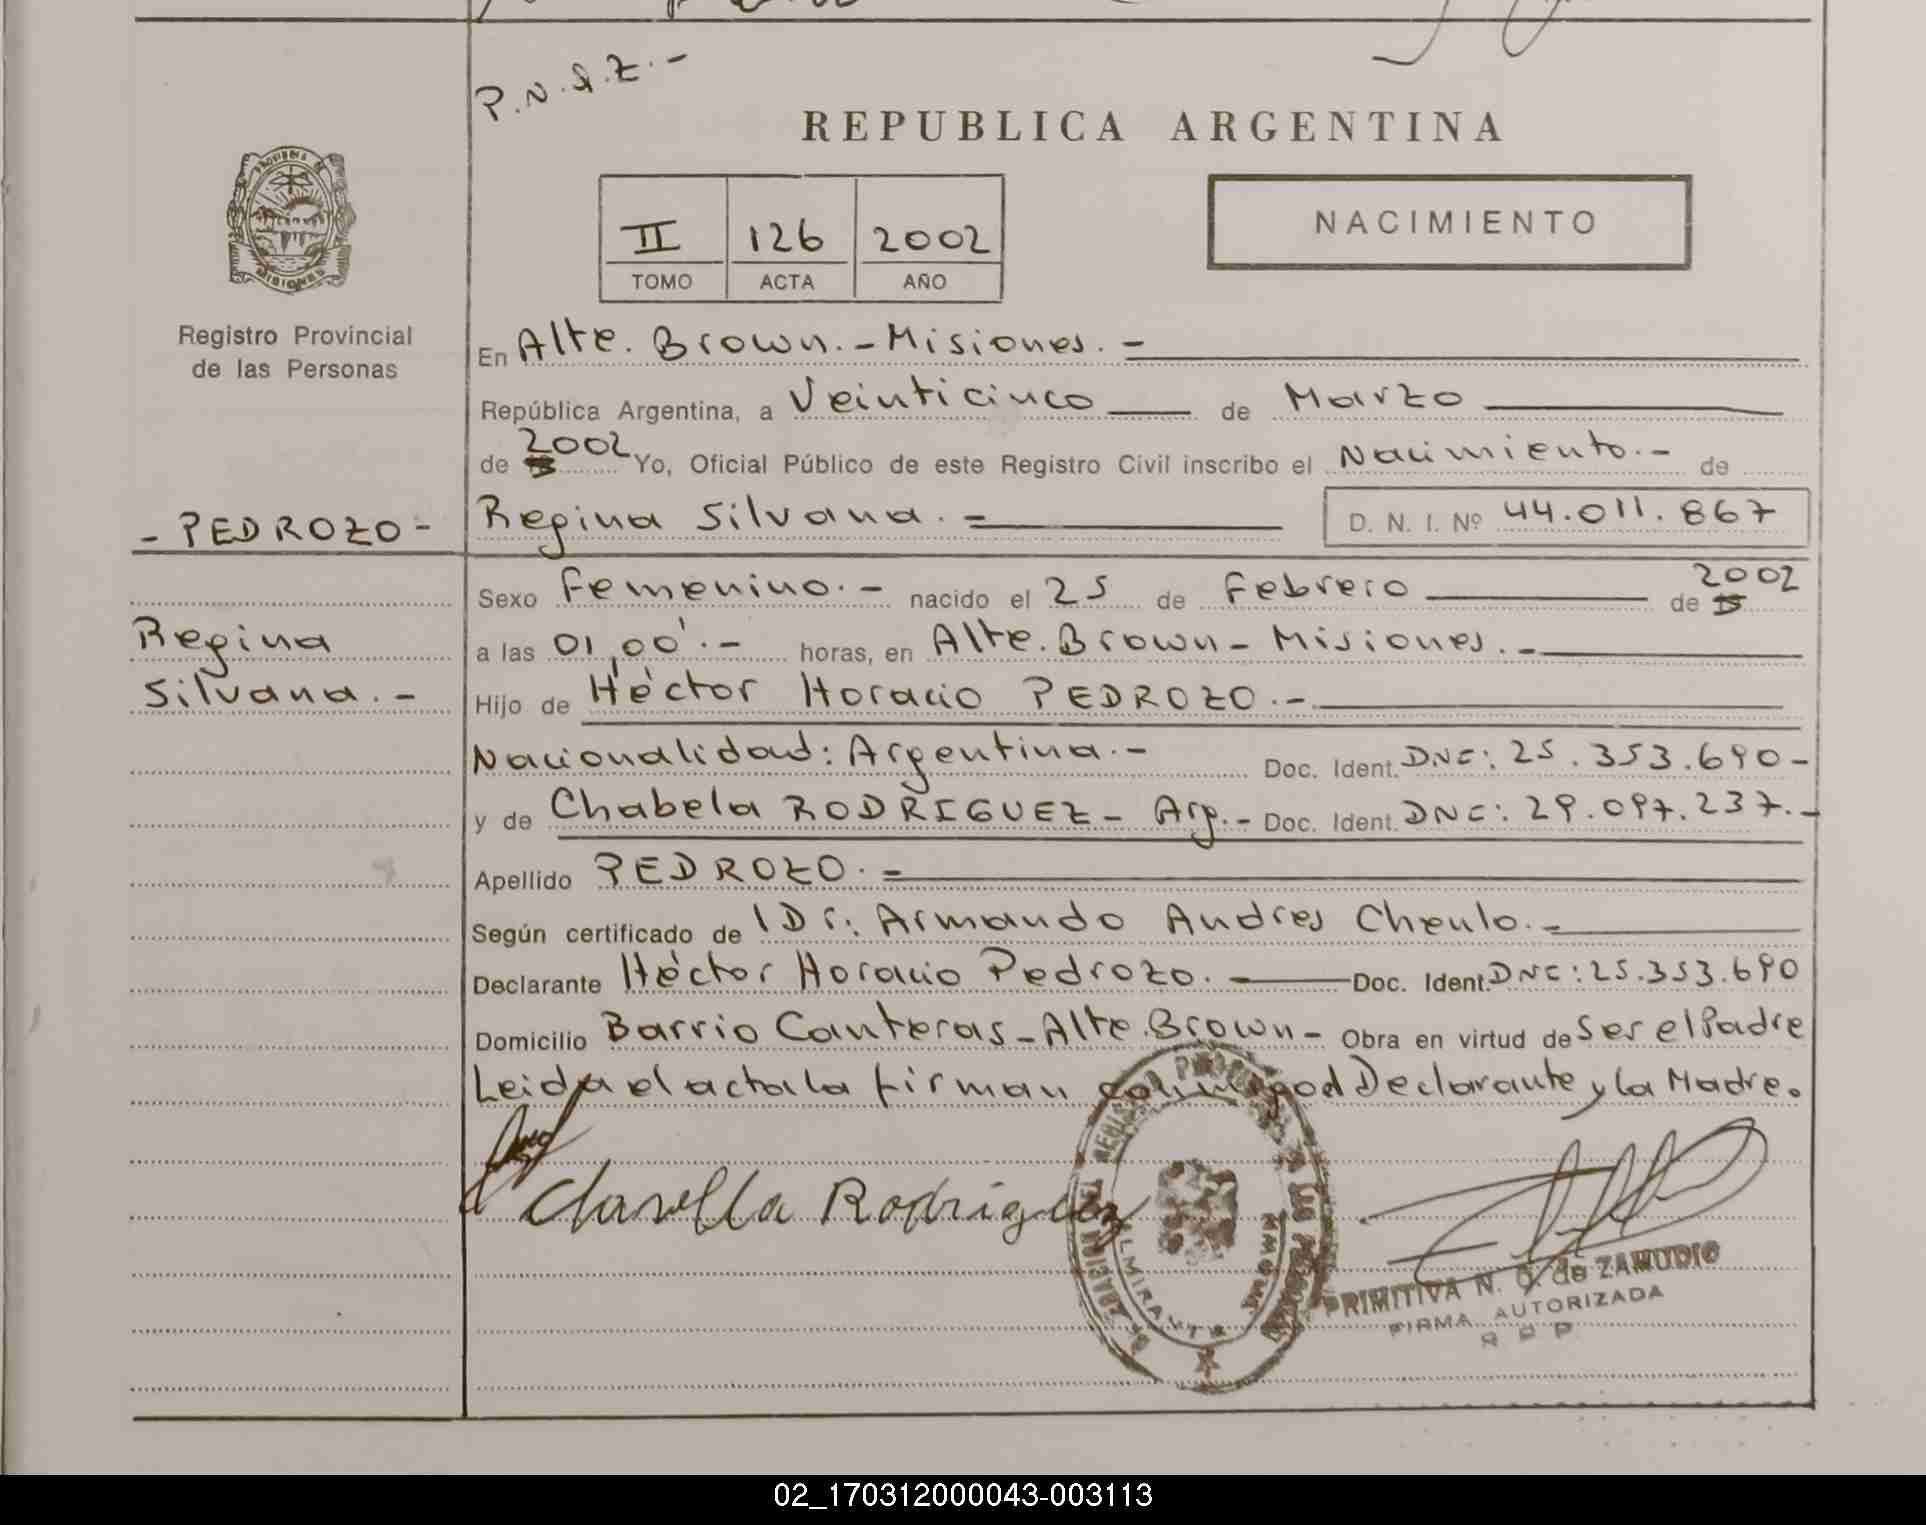 P.N.Q.Z.-
REPUBLICA ARGENTINA
II 126 2002
TOMO ACTA AÑO
NACIMIENTO
PROVINCIA DE
MISIONES
Registro Provincial
de las Personas
En Alte. Brown.-Misiones.-
República Argentina, a Veinticinco de Marzo
de 2002 Yo, Oficial Público de este Registro Civil inscribo el Nacimiento.- de
- PEDROZO -
Regina Silvana.=
D. N. I. Nº 44.011.867
Sexo Femenino.- nacido el 25 de Febrero de 2002
Regina
a las 01,00'.- horas, en Alte. Brown- Misiones.-
Silvana.-
Hijo de Héctor Horacio PEDROZO.-
Nacionalidad: Argentina.- Doc. Ident. DNI: 25.353.690-
y de Chabela RODRIGUEZ- Arg.- Doc. Ident. DNI: 29.097.237.-
Apellido PEDROZO.=
Según certificado de Dr: Armando Andres Cheulo.-
Declarante Héctor Horacio Pedrozo. Doc. Ident. DNI: 25.353.690
Domicilio Barrio Canteras-Alte.Brown- Obra en virtud de Ser el Padre
Leida el acta la firman conmigo el Declarante y la Madre.
Rodriguez
REGISTRO PROVINCIAL DE LAS PERSONAS
ALMIRANTE BROWN
PRIMITIVA N. G. de ZAMUDIO
FIRMA AUTORIZADA
R P P
02_170312000043-003113